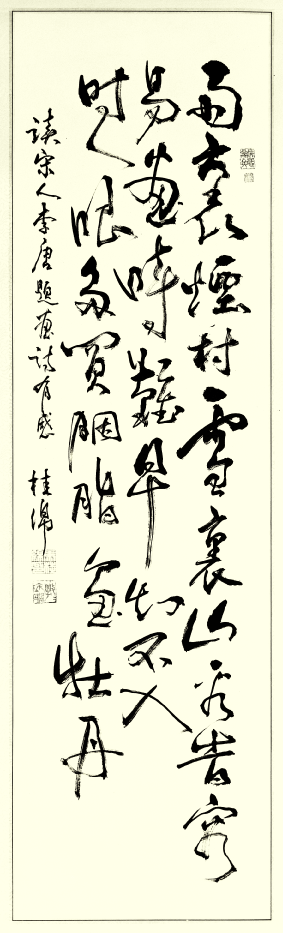 雨裏煙村雪裏山看旹容
易畫時難早知不入
時人眼多買胭脂畫牡丹
讀宋人李唐題畫詩有感 桂